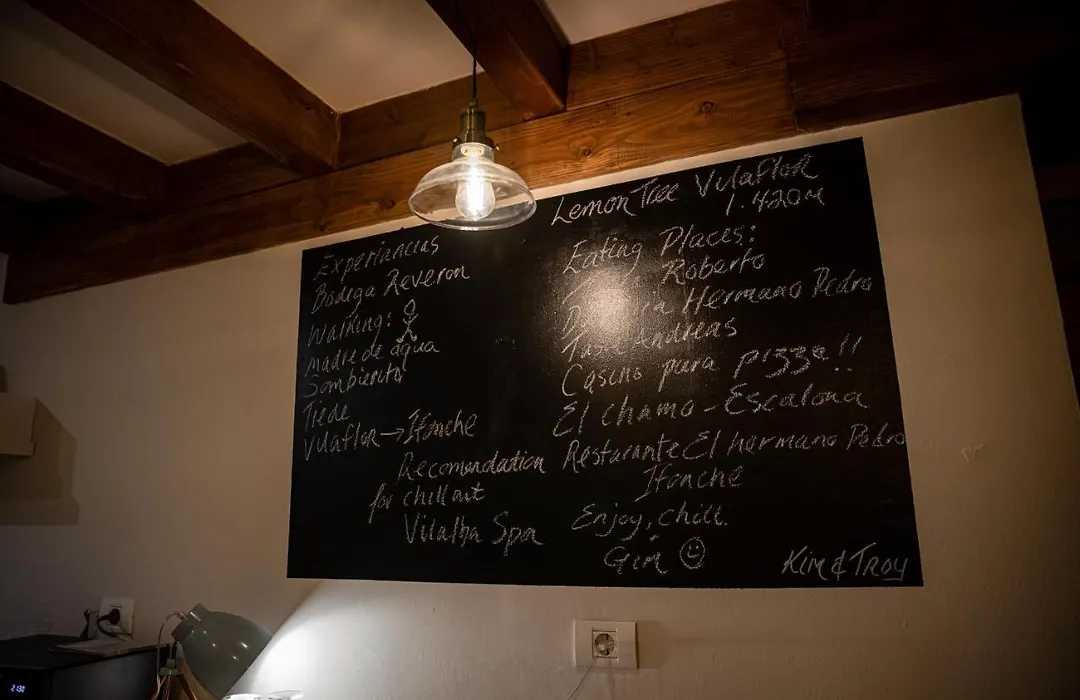 Experiancias
Bodega Reveron
Walking:
Madre de agua
Sombierito
Tiede
Vilaflor → Ifonche
Recomendation
for chill out
Vilalba Spa
Lemon Tree Vilaflor
1.420M
Eating Places:
Roberto
Hermano Pedro
Andreas
Casino para pizza!!
El chamo - Escalona
Resturante El hermano Pedro
Ifonche
Enjoy, chill.
Kim & Troy
21:30